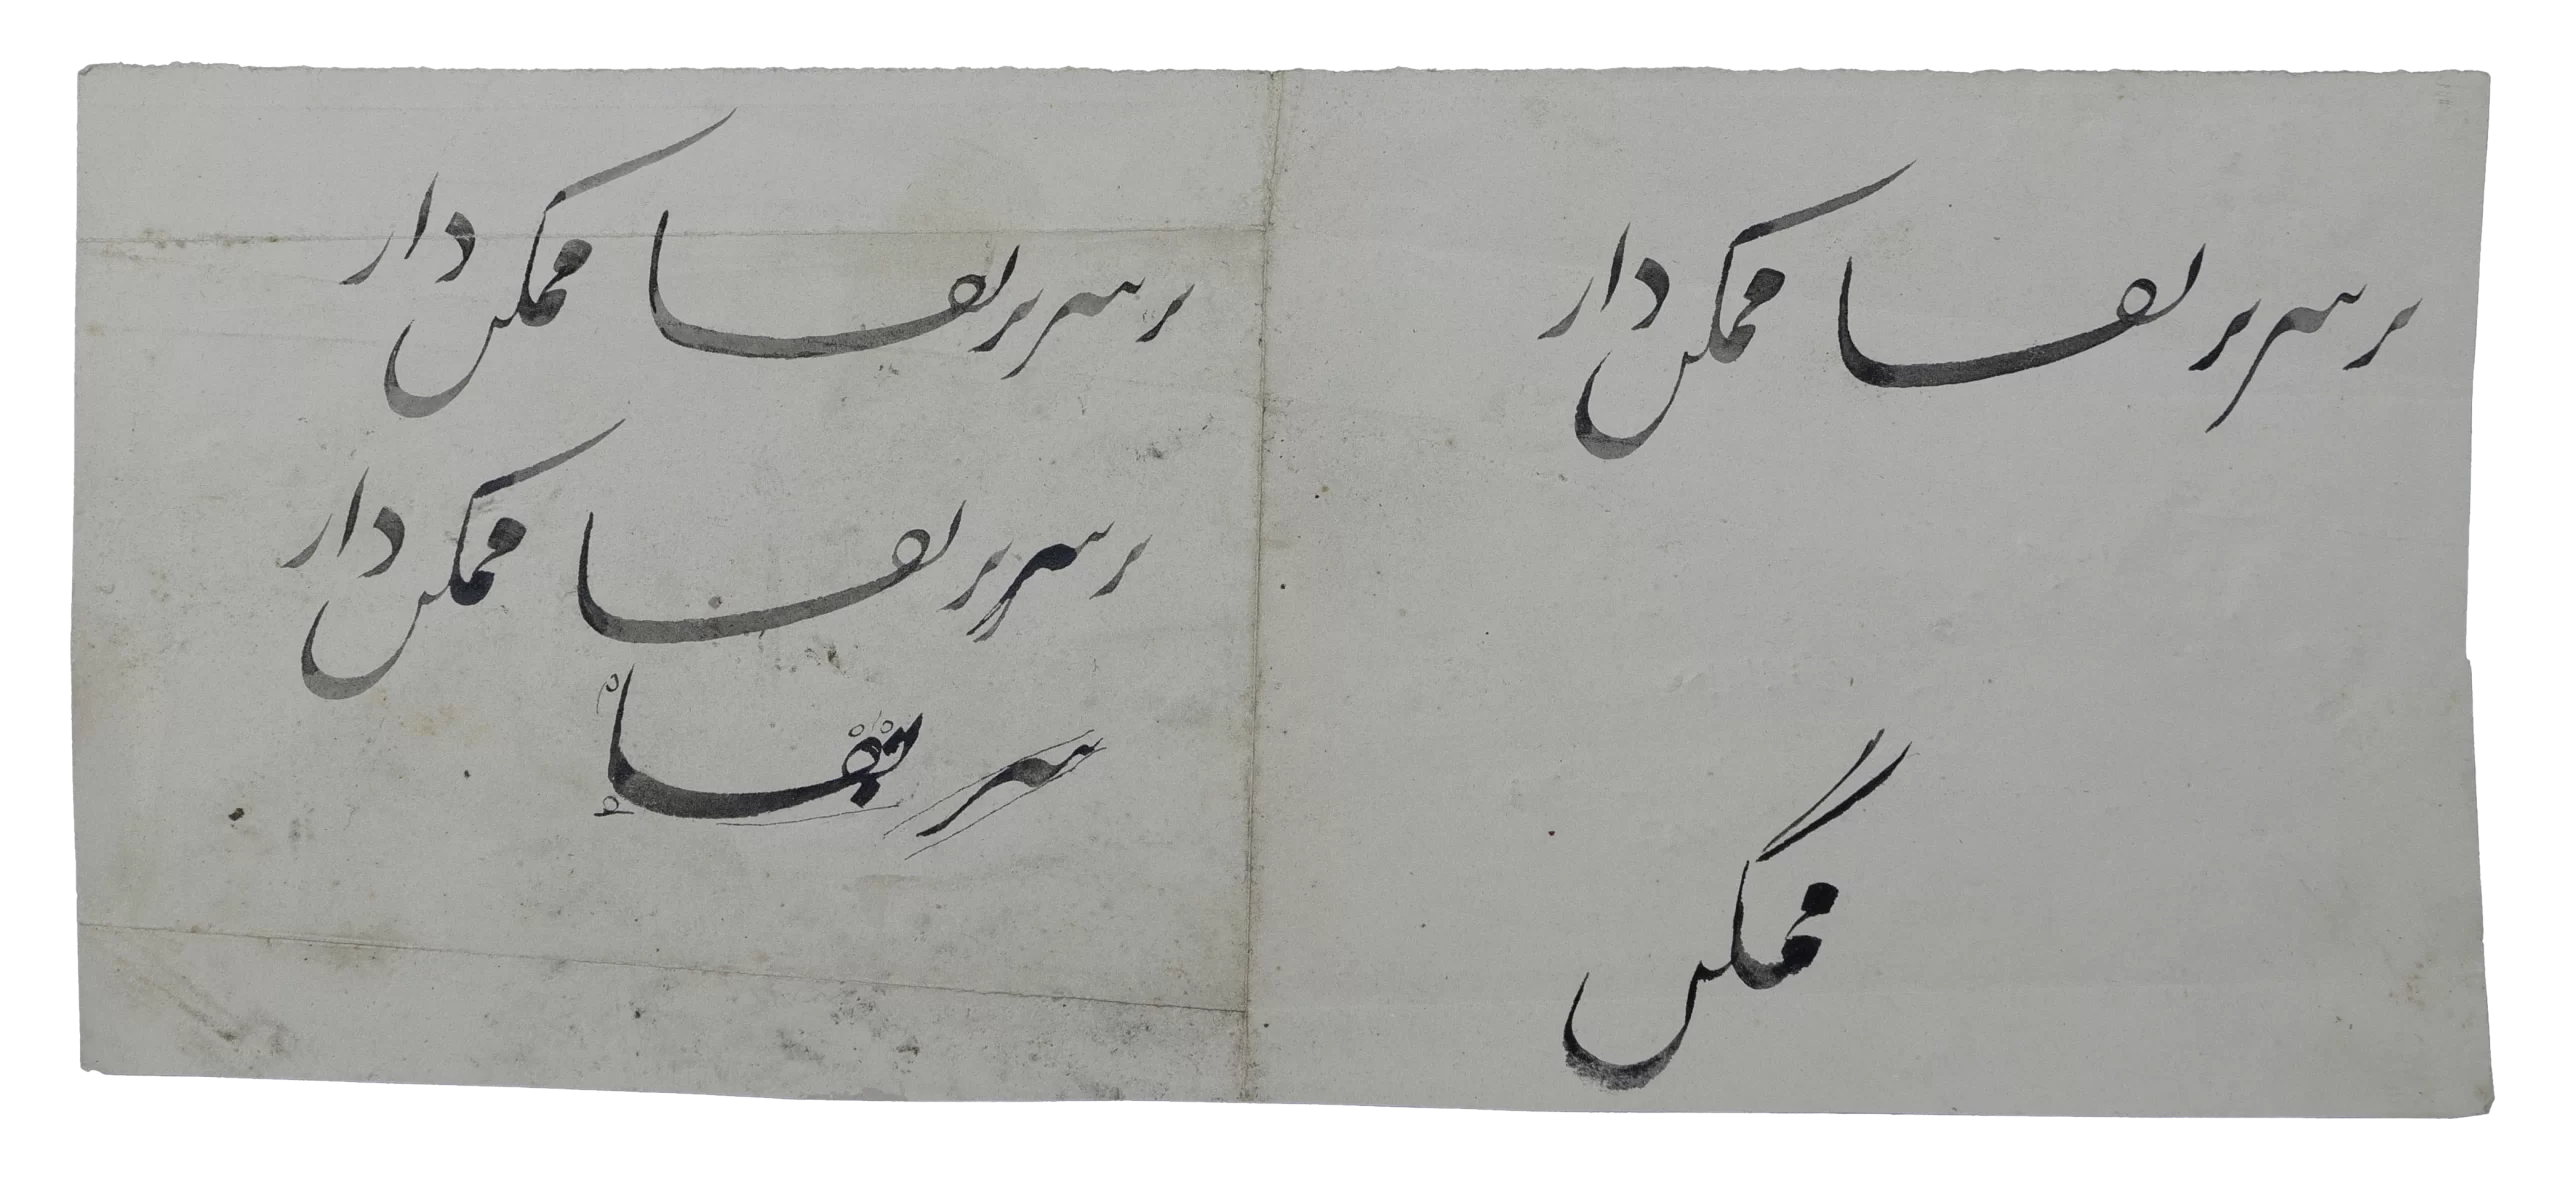 بر سریر بقا ممکن دار
ممکن
بر سریر بقا ممکن دار
بر سریر بقا ممکن دار
سر بقا